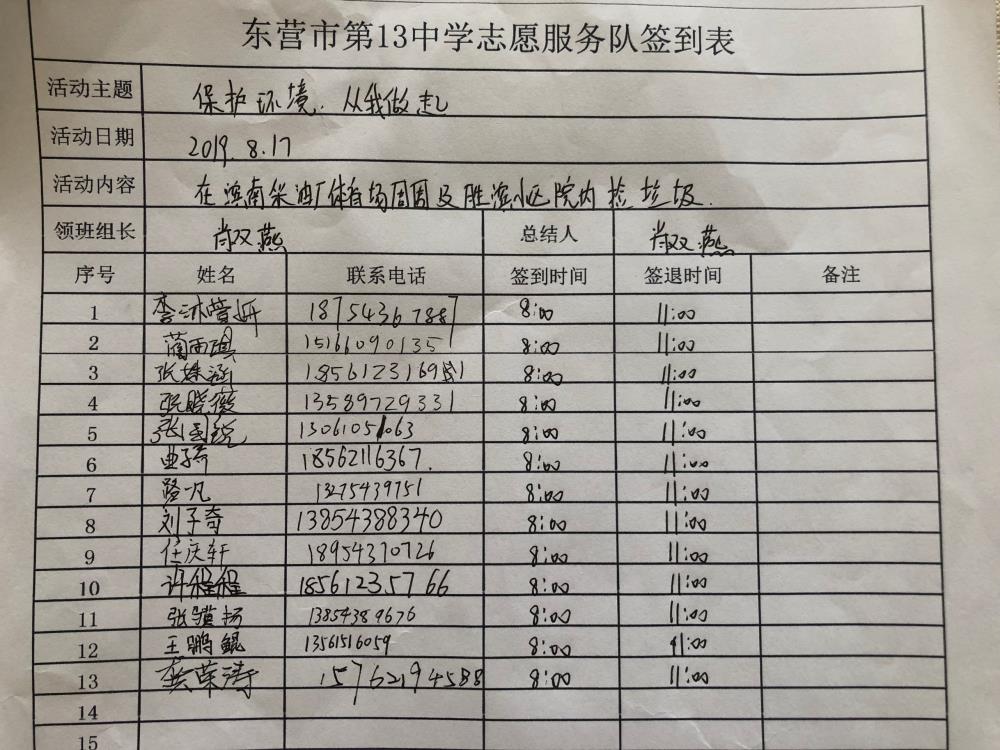 东营市第13中学志愿服务队签到表
活动主题 保护环境.从我做起
活动日期 2019.8.17
活动内容 在滨南采油厂体育场周围及胜滨小区院内捡垃圾.
领班组长 肖双燕 总结人 肖双燕
序号 姓名 联系电话 签到时间 签退时间 备注
1 李沐萱妍 18754367887 8:00 11:00
2 蔺雨琪 15166090135 8:00 11:00
3 张姝涵 8:00 11:00
4 张晓薇 13589729331 8:00 11:00
5 8:00 11:00
6 曲子奇 18562116367. 8:00 11:00
7 路凡 13275439751 8:00 11:00
8 刘子奇 13854388340 8:00 11:00
9 任庆轩 18954370726 8:00 11:00
10 许程程 18561235766 8:00 11:00
11 张骥扬 13854389676 8:00 11:00
12 王鹏鲲 13561516059 8:00 11:00
13 龚荣涛 15762194588 8:00 11:00
14
15